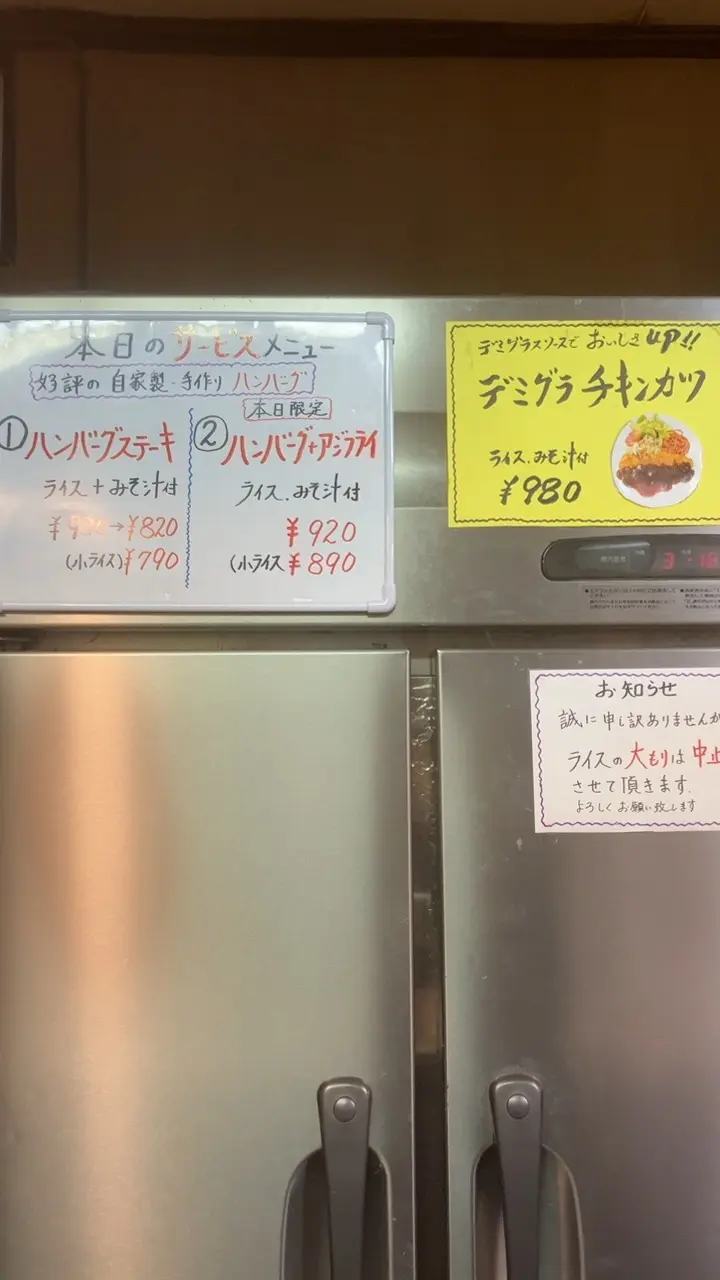 本日のサービスメニュー
好評の自家製・手作りハンバーグ
①ハンバーグステーキ
ライス+みそ汁付
→¥820
(小ライス)¥790
本日限定
②ハンバーグ+アジフライ
ライス.みそ汁付
¥920
(小ライス¥890
デミグラスソースでおいしさup!!
デミグラチキンカツ
ライス.みそ汁付
¥980
お知らせ
誠に申し訳ありませんが
ライスの大もりは中止
させて頂きます.
よろしくお願い致します